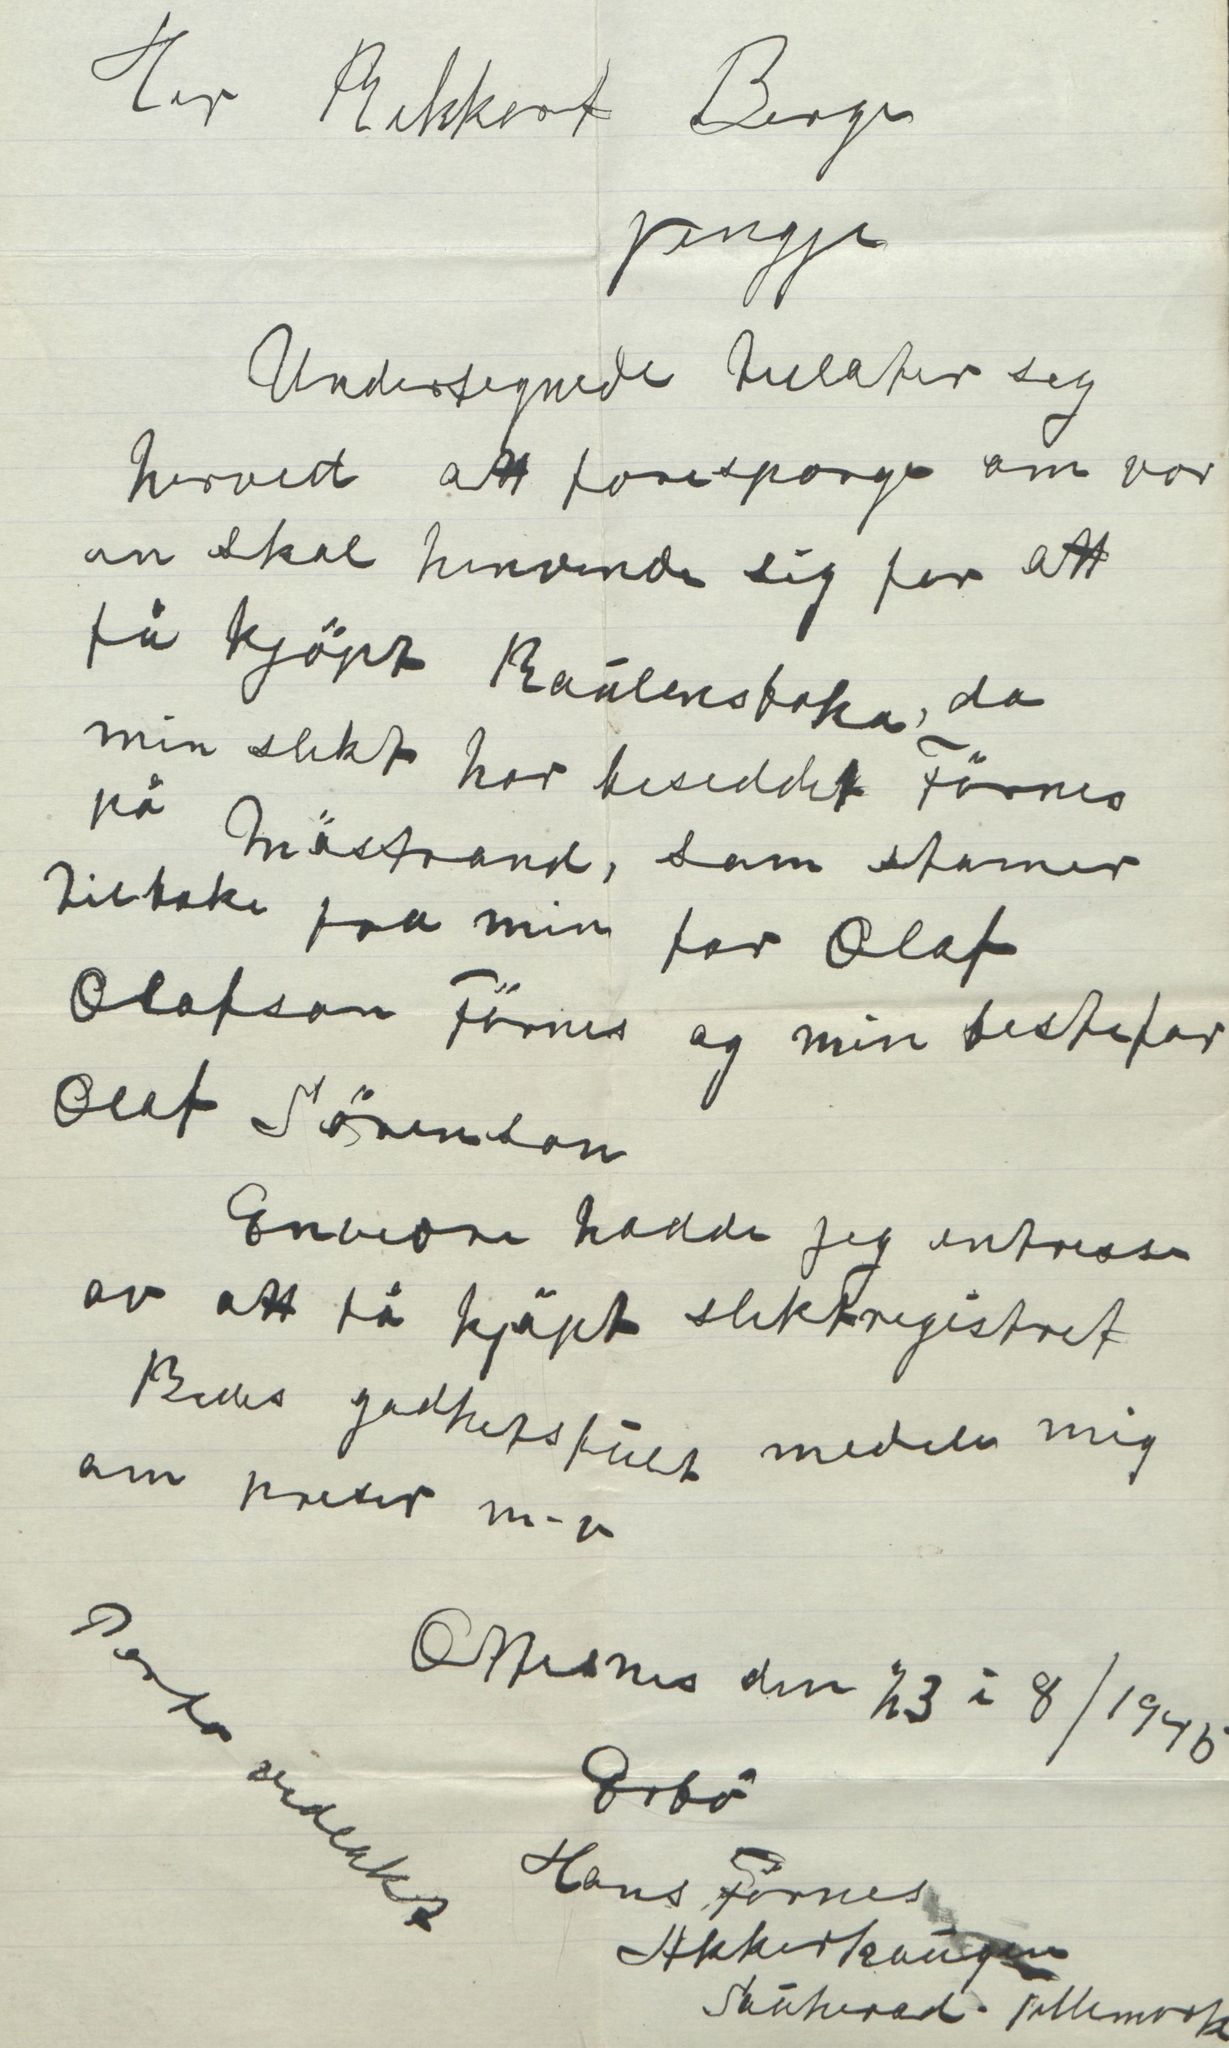 Her Rikkert Berge
Vengje
Undersegnede tillater seg
herved att forespørge om vor
en skal henvende sig for att
få kjöpt Raúlensboka, da
min slekt har beseddet Förnes
på Möstrand, som stamer
tilbake fra min far Olaf
Olafson Förnes og min bestefar
Olaf Sörenson
Envidre hadde jeg entresse
av att få kjöpt slektregistret
Bedes godhetsfúlt medele mig
om preser m-v
Ottesnes den 23 i 8/1946
Erbö
Hans Förnes
Akkerhaúgen
Saúherad. Tellemark
Porto vedlakt